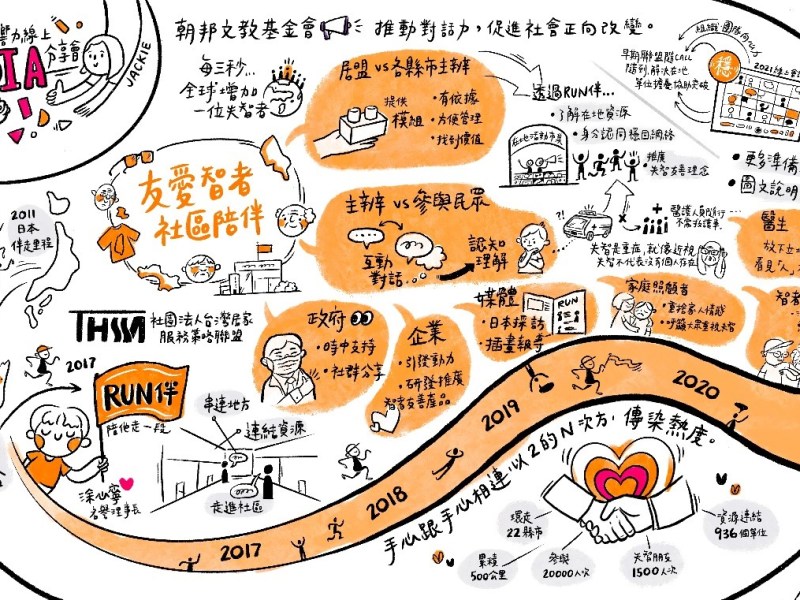 朝邦文教基金會 推動對話力,促進社會正向改變。
線上
分享會
IA
JACKIE
每三秒...
全球增加
一位失智者
友愛智者
社區陪伴
居盟 vs 各縣市主辦
提供
模組
・有依據
・方便管理
・找到價值
透過RUN伴...
・了解在地資源
・身分認同穩固網絡
在地活動市集
・推廣
失智友善理念
組織團隊向心力
穩
早期聯盟隨CALL
隨到,解決在地
單位擔憂協助突破
・更多準備
・圖文說明
主辦 vs 參與民眾
互動
對話...
認知
理解
?!
醫護人員隨行
不需救護車
失智是重症,就像近視
失智不代表沒有個人存在
醫生
放下
看見"人"
2011
日本
伴走里程
THSM 社團法人台灣居家
服務策略聯盟
政府
・時中支持
・社群分享
企業
・引發動力
・研發推廣
智者友善產品
媒體
・日本採訪
・插畫報導
RUN
家庭照顧者
・重拾家人情感
・呼籲大眾重視失智
智者
2017
RUN伴
陪他走一段
涂心寧
名譽理事長
串連地方
連結資源
走進社區
2017
2018
2019
2020
手心跟手心相連,以2的N次方,傳染熱度。
環走
22縣市
累積
500公里
參與
20000人次
失智朋友
1500人次
資源連結
936個單位